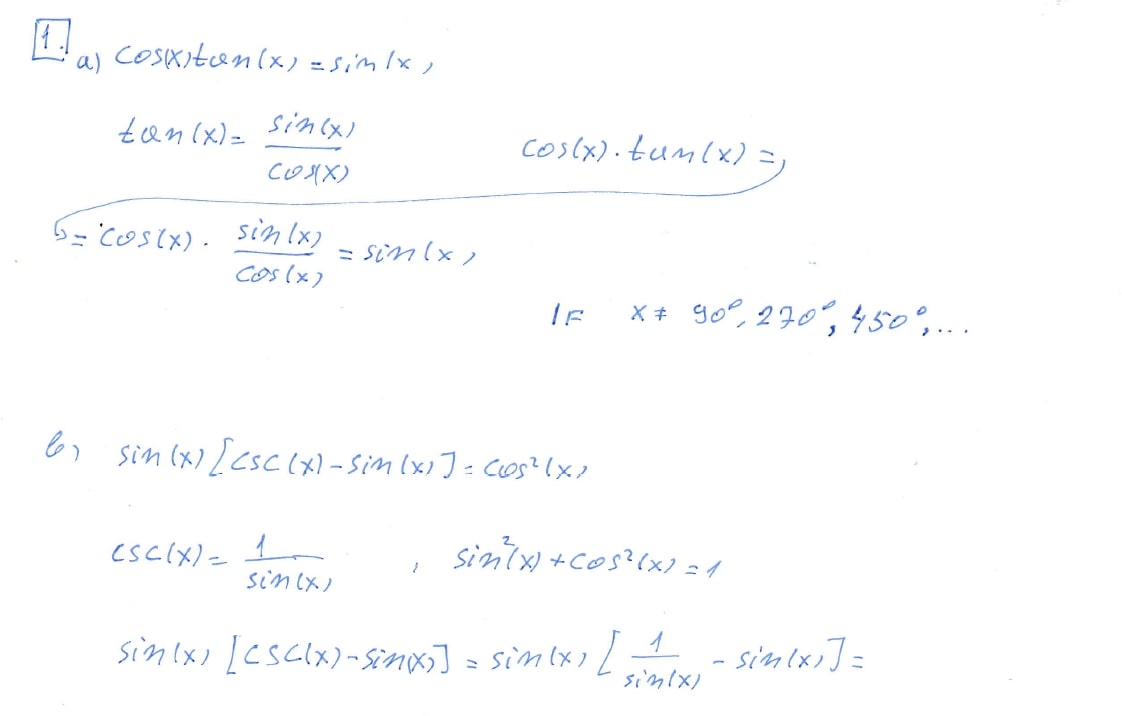 1. a) cos(x)tan(x) = sin(x)
tan(x) = sin(x)/cos(x) cos(x) · tan(x) =
= cos(x) · sin(x)/cos(x) = sin(x)
IF x ≠ 90°, 270°, 450°, ...
b) sin(x)[csc(x) - sin(x)] = cos²(x)
csc(x) = 1/sin(x) , sin²(x) + cos²(x) = 1
sin(x) [csc(x) - sin(x)] = sin(x) [1/sin(x) - sin(x)] =